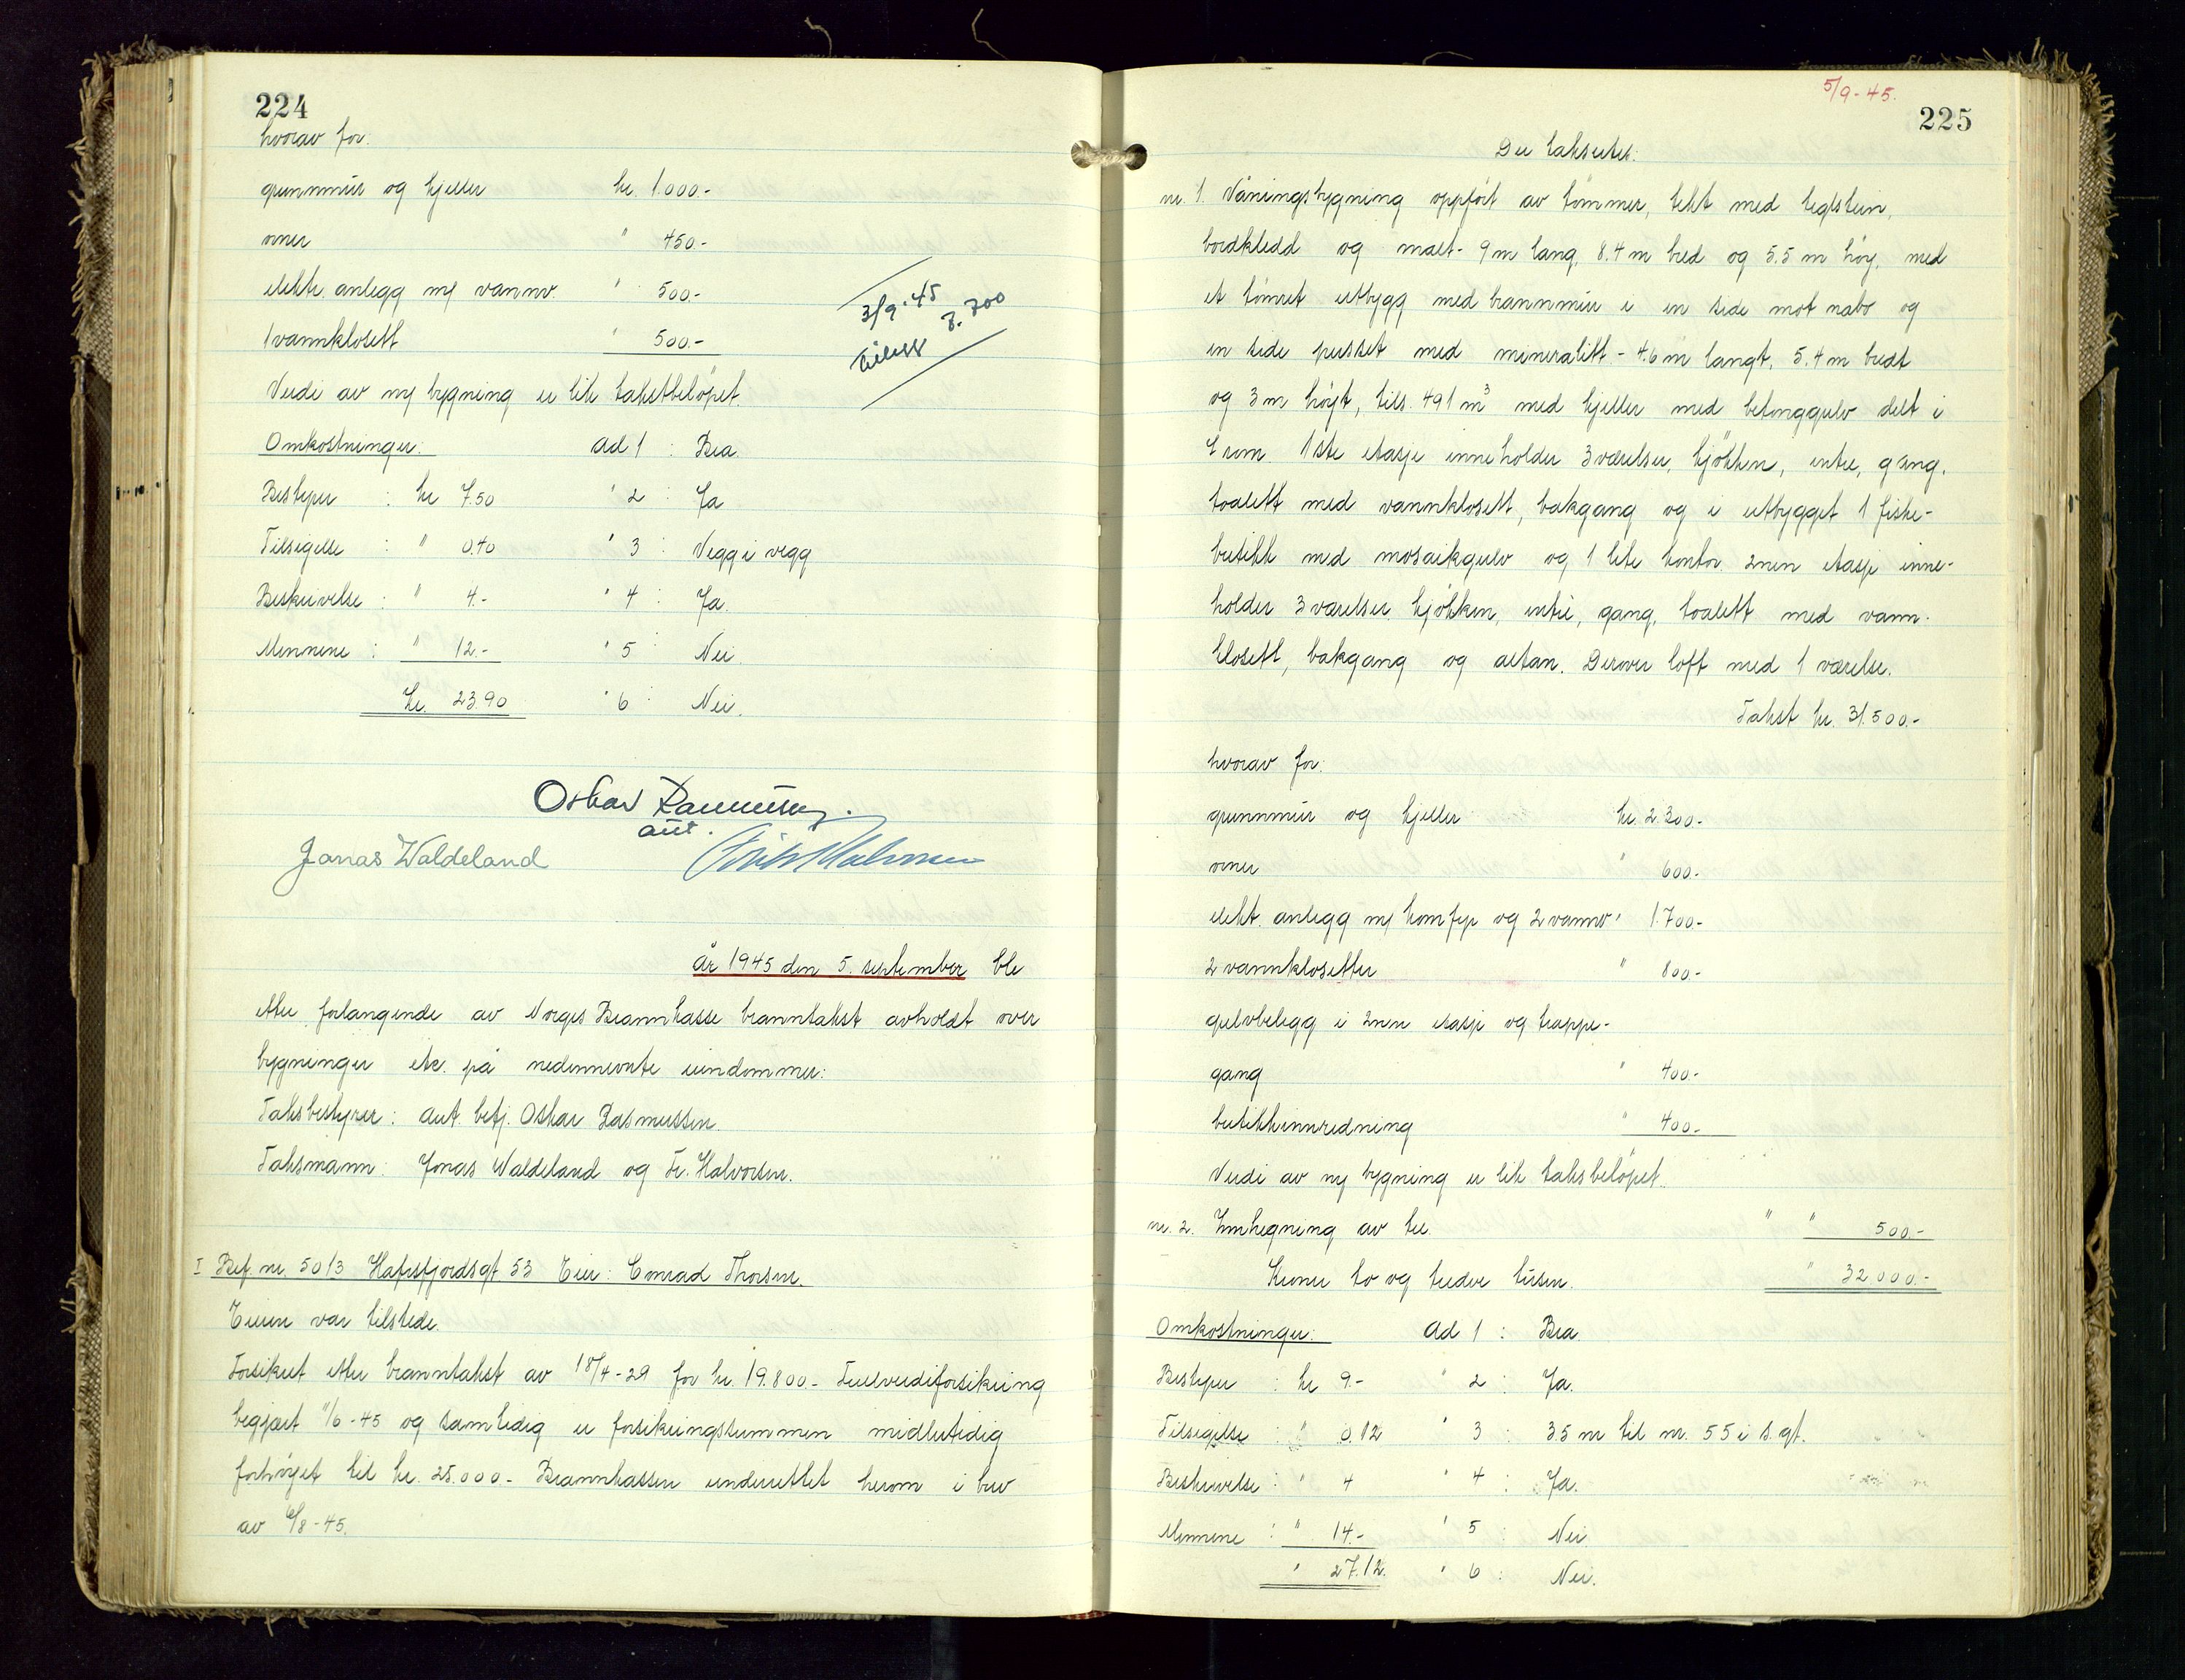 224
hvorav for:
grunnmur og kjeller kr. 1.000.-
ovner " 450.-
elektr. anlegg m/ vannv. " 500.-
1 vannklosett " 500.-
3/9-45
tillegg
Verdi av ny bygning er lik takstbeløpet.
Omkostninger: Ad 1 : Bra.
Bestyrer : kr 7.50 " 2 : Ja
Tilsigelse : " 0.40 " 3 : Vegg i vegg
Beskrivelse : " 4.- " 4 : Ja.
Mennene : " 12.- " 5 : Nei.
kr. 23.90 " 6 : Nei.
Oskar Rasmussen.
aut.
Jonas Waldeland
År 1945 den 5. september ble
etter forlangende av Norges Brannkasse branntakst avholdt over
bygninger etc. på nedennevnte eiendommer:
Takstbestyrer: aut. betj. Oskar Rasmussen.
Takstmann: Jonas Waldeland og Fr. Halvorsen.
I Bef. nr. 5013 Hafrsfjordsgt 53 Eier: Conrad Thorsen.
Eieren var tilstede.
Forsikret etter branntakst av 18/4-29 for kr. 19.800.- Fullverdiforsikring
begjært 11/6-45 og samtidig er forsikringssummen midlertidig
forhøyet til kr. 25.000.- Brannkassen underrettet herom i brev
av /8-45.
5/9-45.
225
Der takseres:
nr. 1. Våningsbygning oppført av tømmer, tekt med teglstein,
bordkledd og malt - 9 m lang, 8.4 m bred og 5.5 m høy, med
et tømret utbygg med brannmur i en side mot nabo og
en side pusset med mineralitt - 4.6 m langt, 5.4 m bredt
og 3 m høyt, tils. 491 m³ med kjeller med betonggulv delt i
rum. 1ste etasje inneholder 3 værelser, kjøkken, entre, gang,
toalett med vannklosett, bakgang og i utbygget 1 fiske-
butikk med mosaikgulv og 1 lite kontor. 2nen etasje inne-
holder 3 værelser, kjøkken, entre, gang, toalett med vann-
klosett, bakgang og altan. Derover loft med 1 værelse.
Takst kr. 31.500.-
hvorav for:
grunnmur og kjeller kr. 2.300.-
ovner " 600.-
elekt. anlegg m/ komfyr og 2 vannv. " 1.700.-
2 vannklosetter " 800.-
gulvbelegg i 2nen etasje og trappe-
gang " 400.-
butikkinnredning " 400.-
Verdi av ny bygning er lik takstbeløpet.
nr. 2. Innhegning av tre. " " 500.-
Kroner to og tredve tusen. " 32000.-
Omkostninger: Ad 1 : Bra.
Bestyrer : kr 9.- " 2 : Ja.
Tilsigelse : " 0.12 " 3 : 3.5 m til nr. 55 i s. gt.
Beskrivelse : " 4 " 4 : Ja.
Mennene : " 14.- " 5 : Nei.
" 27.12. " 6 : Nei.